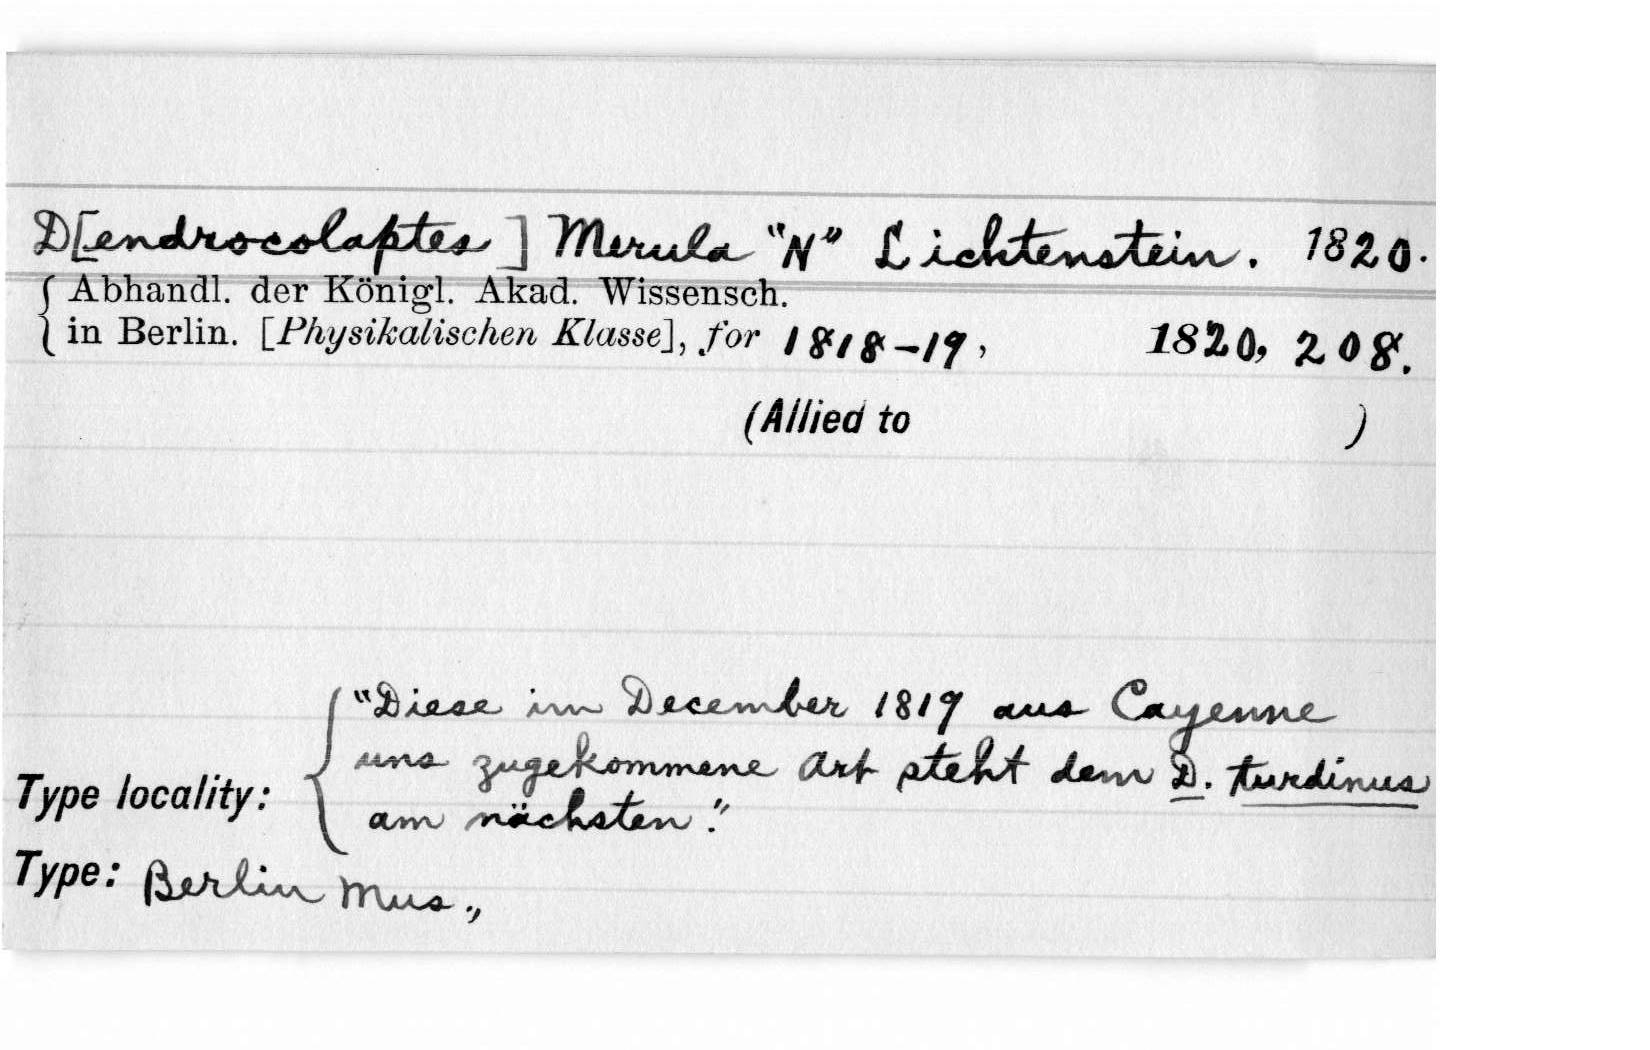 D[endrocolaptes] Merula "N" Lichtenstein. 1820.
Abhandl. der Königl. Akad. Wissensch.
in Berlin. [Physikalischen Klasse], for 1818-19, 1820, 208.
(Allied to )
"Diese im December 1819 aus Cayenne
uns zugekommene Art steht dem D. turdinus
Type locality:
am nächsten."
Type: Berlin Mus.,